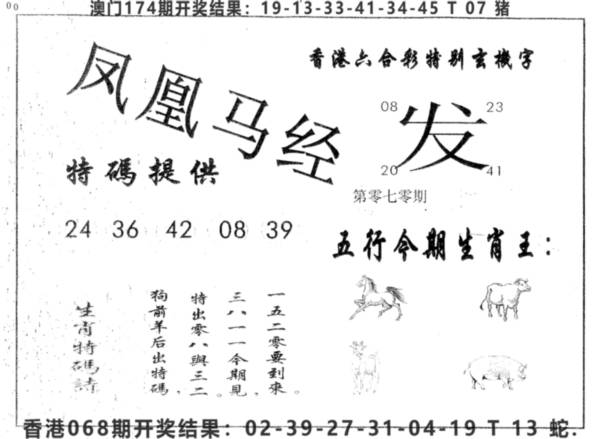 00
澳门174期开奖结果：19-13-33-41-34-45 T 07 猪
香港六合彩特别玄機字
凤凰马经
08 23
发
20 41
特碼提供
第零七零期
24 36 42 08 39
五行今期生肖王：
一五二零要到來
三八一一今期見，
特出零八與三二
狗前羊后出特碼。
生肖特碼詩
香港068期开奖结果：02-39-27-31-04-19 T 13 蛇.